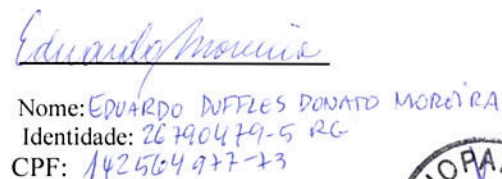 Eduardo Moreira
Nome: EDUARDO DUFFLES DONATO MOREIRA
Identidade: 26790479-5 RG
CPF: 142564977-73
OPA